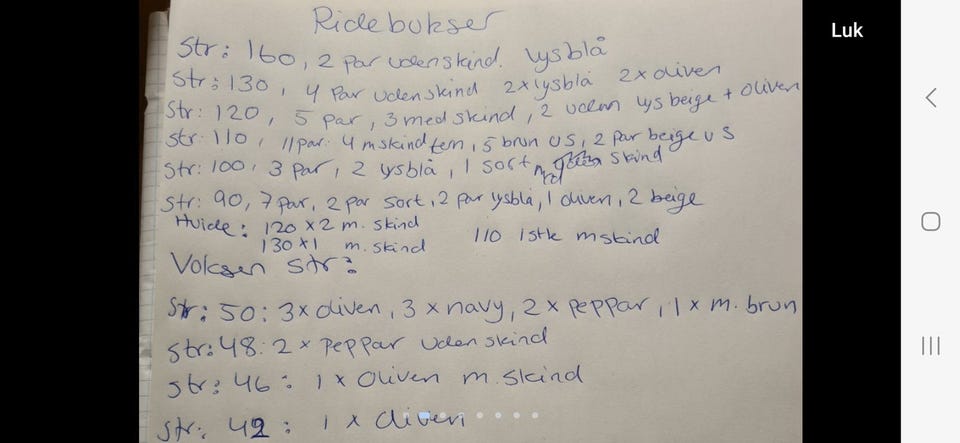 Ridebukser
Luk
Str: 160, 2 par uden skind. lysblå
Str: 130, 4 par uden skind 2x lysblå 2x oliven
Str: 120, 5 par, 3 med skind, 2 uden lys beige + oliven
Str: 110, 11 par. 4 m skind fem, 5 brun US, 2 par beige u S
Str: 100, 3 par, 2 lysblå, 1 sort med skind
Str: 90, 7 par, 2 par sort, 2 par lysblå, 1 oliven, 2 beige
Hvide: 120 x 2 m. skind
130 x 1 m. skind 110 1 stk m skind
Voksen str:
Str: 50: 3 x oliven, 3 x navy, 2 x peppar, 1 x m. brun
Str: 48: 2 x peppar uden skind
Str: 46: 1 x oliven m. skind
Str: 42: 1 x oliven